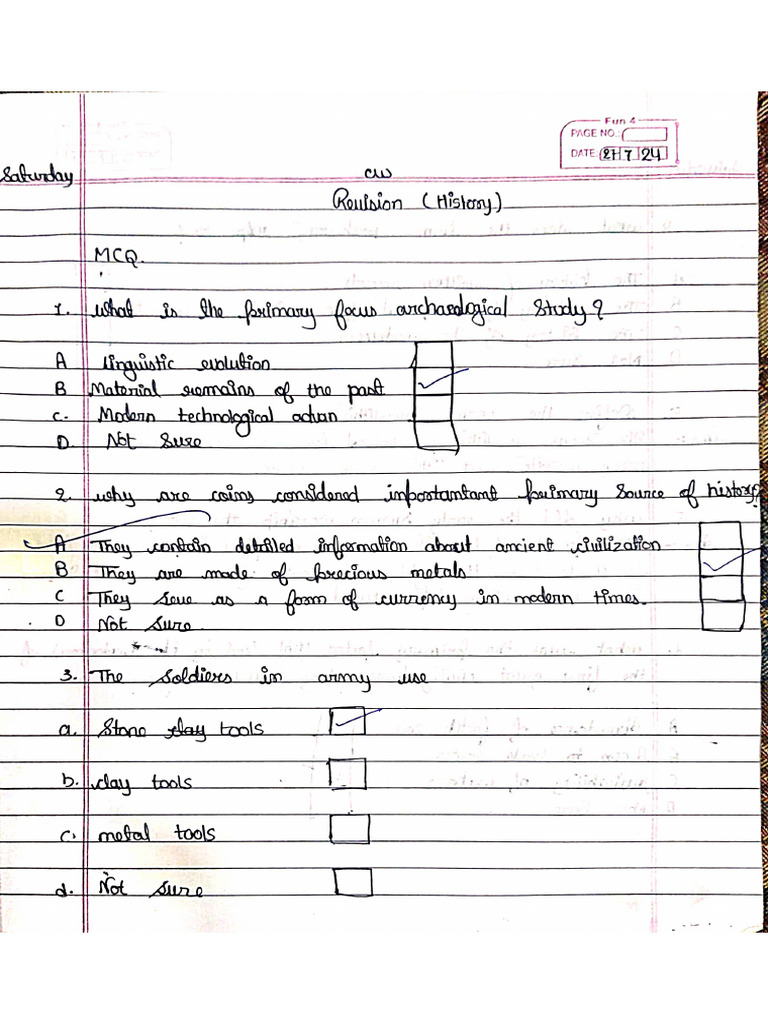 Fun 4
PAGE NO.:
DATE: 27 7 24
Saturday
CW
Revision (History)
MCQ.
1. What is the primary focus archaeological Study?
A Linguistic evolution
B Material remains of the past
C. Modern technological advan
D. Not Sure
2. why are coins considered inpostantant primary Source of history
A They contain detailed information about ancient civilization
B They are made of precious metals
C They seue as a form of currency in modern times.
D Not sure.
3. The Soldiers in army use
a. Stone clay tools
b. clay tools
c. metal tools
d. Not sure